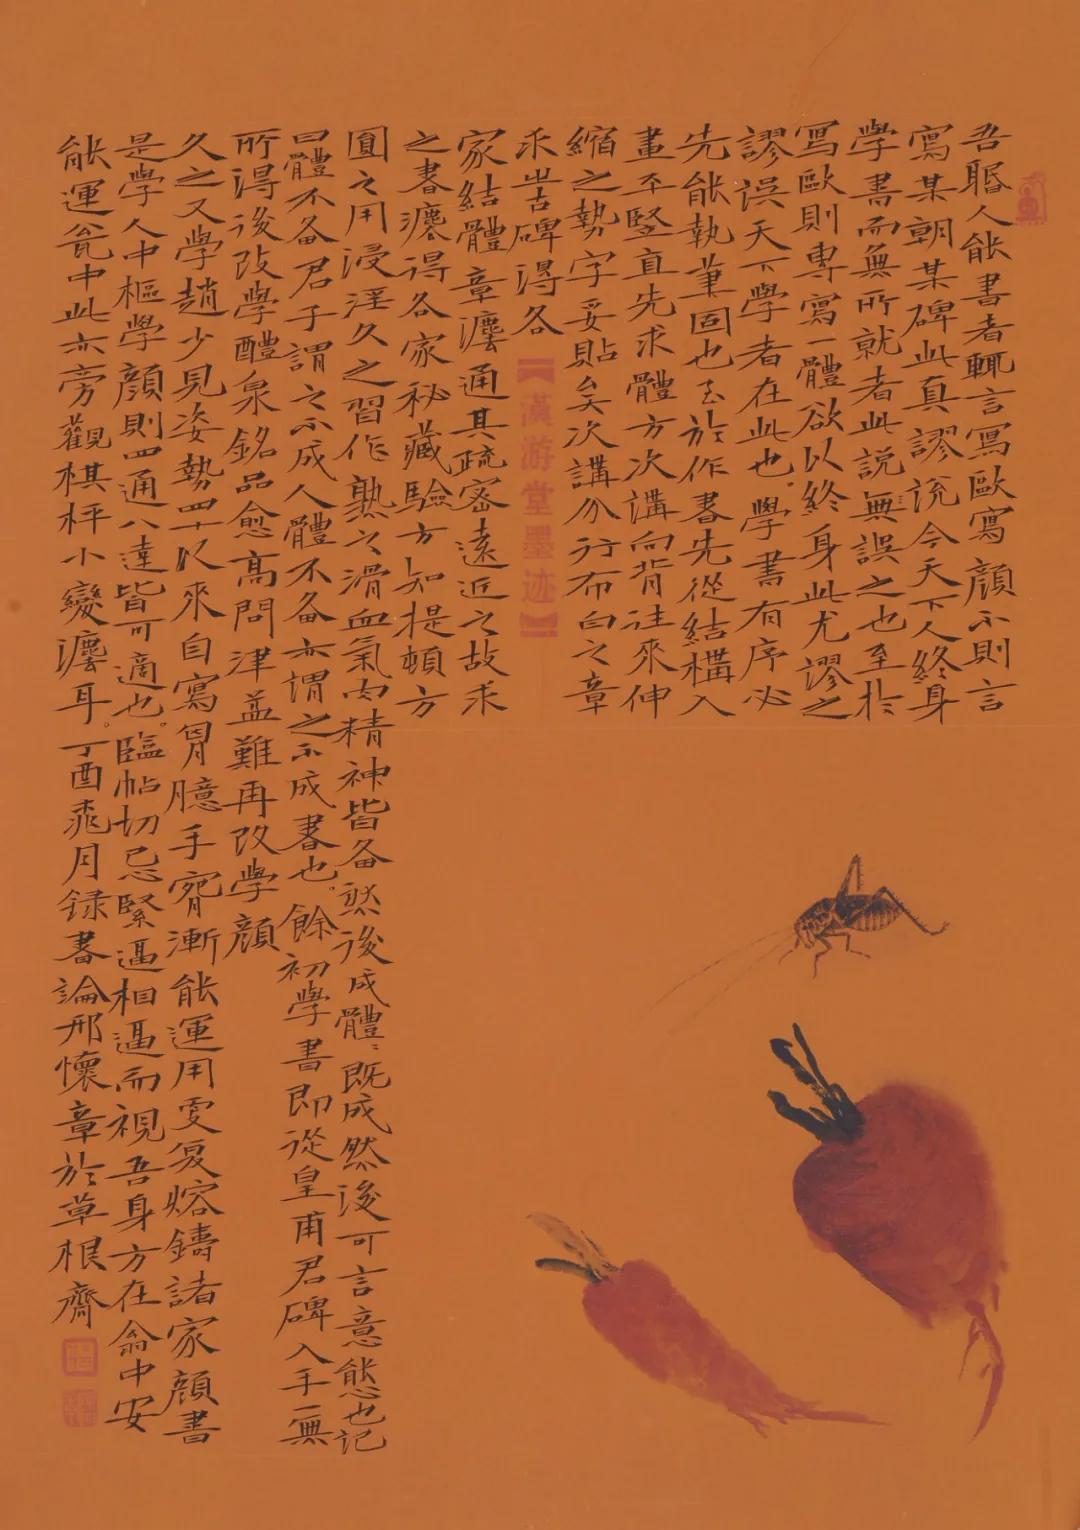 吾聞人能書者輒言寫歐寫顏不則言
寫某朝某碑此真謬說今天下人終身
學書而無所就者此説無誤之也至於
寫歐則專寫一體欲以終身此尤謬之
謬誤天下學者在此也學書有序必
先能執筆固也至於作書先從結構入
畫平豎直先求體方次講向背往來伸
縮之勢字妥貼矣次講分行布白之章
求古碑得各
【漢游堂墨迹】
家結體章灋通其疏密遠近之故求
之書灋得各家秘藏驗方知提頓方
圓之用浸淫久之習作熟之滑血氣肉精神皆备然後成體既成然後可言意態也記
曰體不备君子謂之不成人體不备亦謂之不成書也餘初學書即從皇甫君碑入手無
所得後改學醴泉銘品愈高問津益難再改學顏
久之又學趙少見姿勢四十以來自寫胷臆手腕漸能運用變复熔鑄諸家顏書
是學人中樞學顏則四通八達皆可適也臨帖切忌緊逼相逼而視吾身方在瓮中安
能運瓮中此亦旁觀棋枰小變灋耳丁酉桃月録書論邢懷章於草根齋